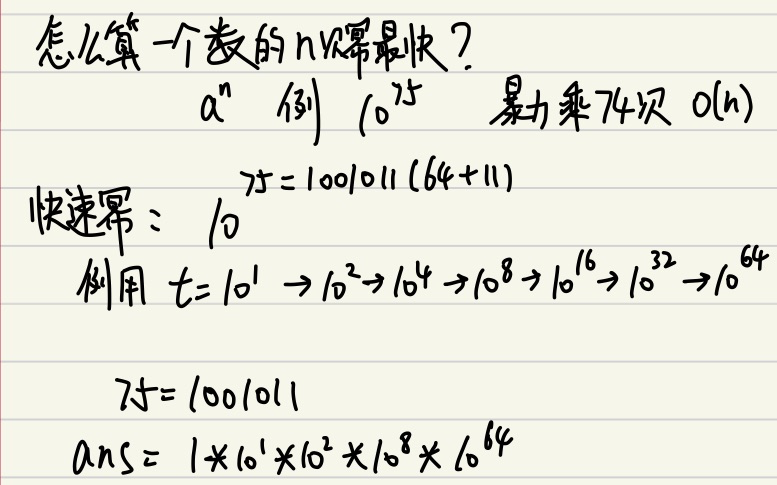 怎么算一个数的n次幂最快?
aⁿ 例 10⁷⁵ 暴力乘74次 O(n)
快速幂: 10^75=1001011(64+11)
利用 t=10¹→10²→10⁴→10⁸→10¹⁶→10³²→10⁶⁴
75=1001011
ans= 1*10¹*10²*10⁸*10⁶⁴